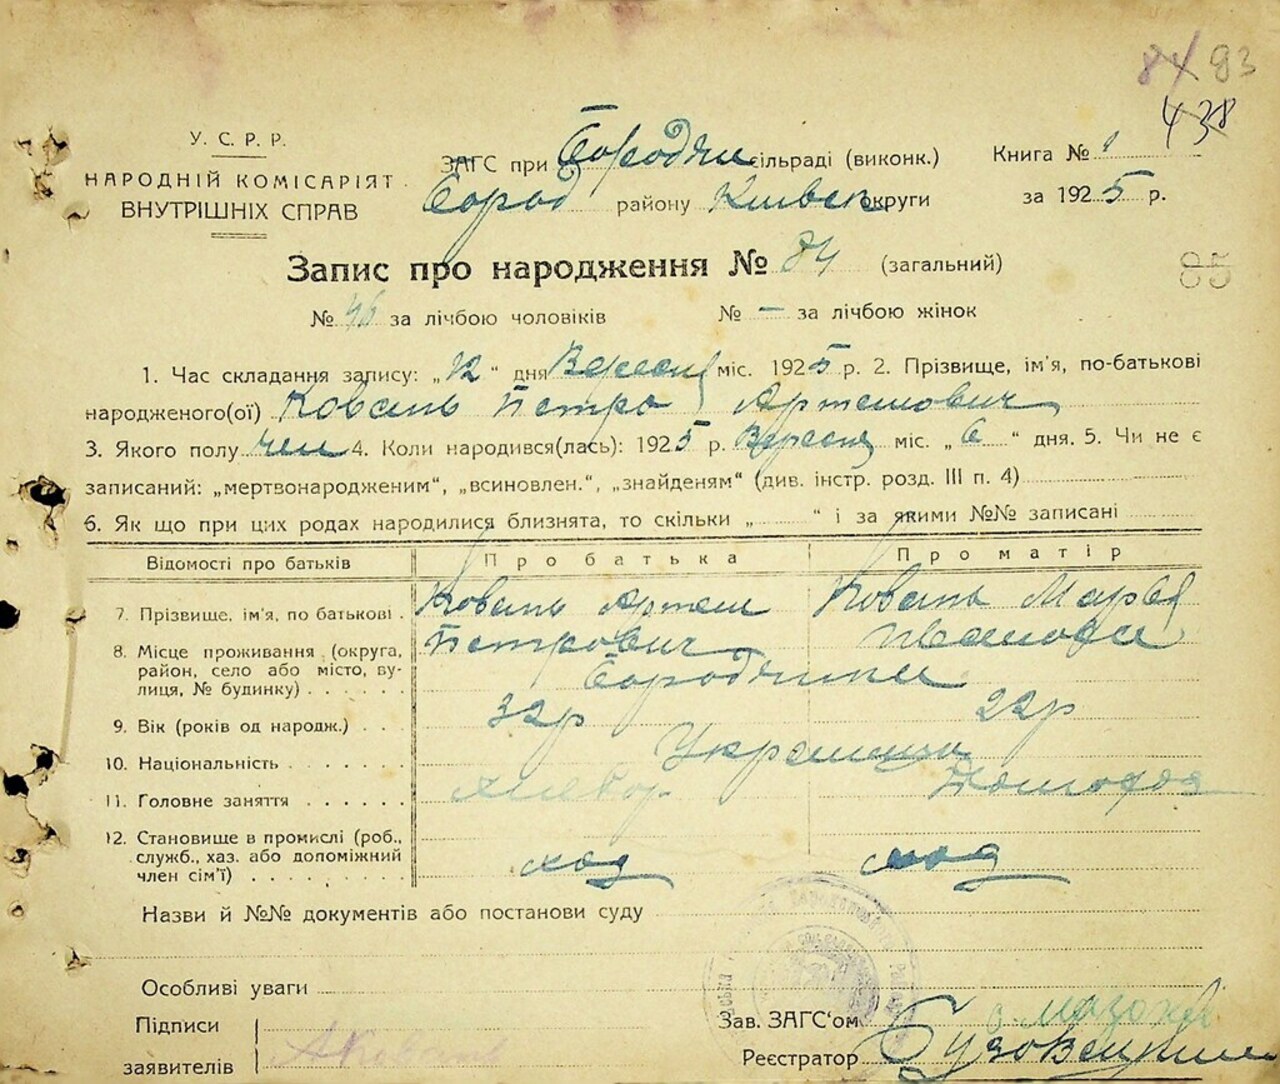 84 93
438
У. С. Р. Р.
НАРОДНІЙ КОМІСАРІЯТ
ВНУТРІШНІХ СПРАВ
ЗАГС при Бородян сільраді (виконк.)
Бород району Київск округи
Книга № 1
за 1925 р.
Запис про народження № 84 (загальний)
№ 46 за лічбою чоловіків № — за лічбою жінок
1. Час складання запису: „12“ дня Вересня міс. 1925 р. 2. Прізвище, ім'я, по-батькові
народженого(ої) Коваль Петро Артемович
3. Якого полу чол 4. Коли народився(лась): 1925 р. Вересня міс. „6“ дня. 5. Чи не є
записаний: „мертвонародженим“, „всиновлен.“, „знайденям“ (див. інстр. розд. III п. 4)
6. Як що при цих родах народилися близнята, то скільки „ “ і за якими №№ записані
Відомості про батьків Про батька Про матір
7. Прізвище, ім'я, по батькові . Коваль Артем Петрович Коваль Марья
8. Місце проживання (округа,
район, село або місто, ву-
лиця, № будинку) . . . . . . Бородянка
9. Вік (років од народж.) . . . 32р 22р
10. Національність . . . . . . Українці
11. Головне заняття . . . . . . хлебор. Домохоз
12. Становище в промислі (роб.,
служб., хаз. або допоміжний
член сім'ї) . . . . . . . .
Назви й №№ документів або постанови суду
Особливі уваги
Підписи
заявителів
Зав. ЗАГС'ом
Реєстратор